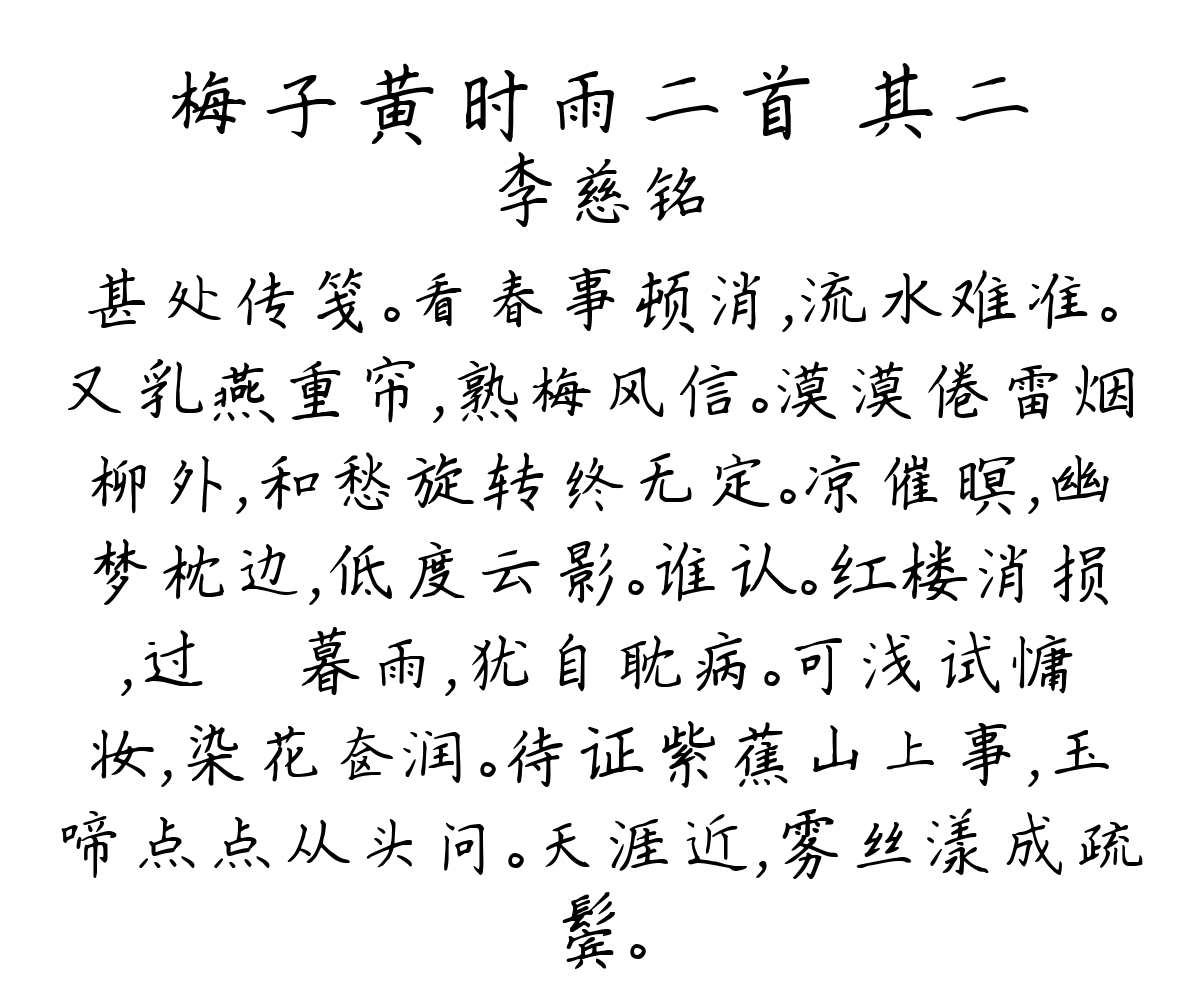 梅子黄时雨二首 其二
李慈铭
甚处传笺。看春事顿消,流水难准。
又乳燕重帘,熟梅风信。漠漠倦雷烟
柳外,和愁旋转终无定。凉催暝,幽
梦枕边,低度云影。谁认。红楼消损
,过 暮雨,犹自耽病。可浅试慵
妆,染花奁润。待证紫蕉山上事,玉
啼点点从头问。天涯近,雾丝漾成疏
鬓。